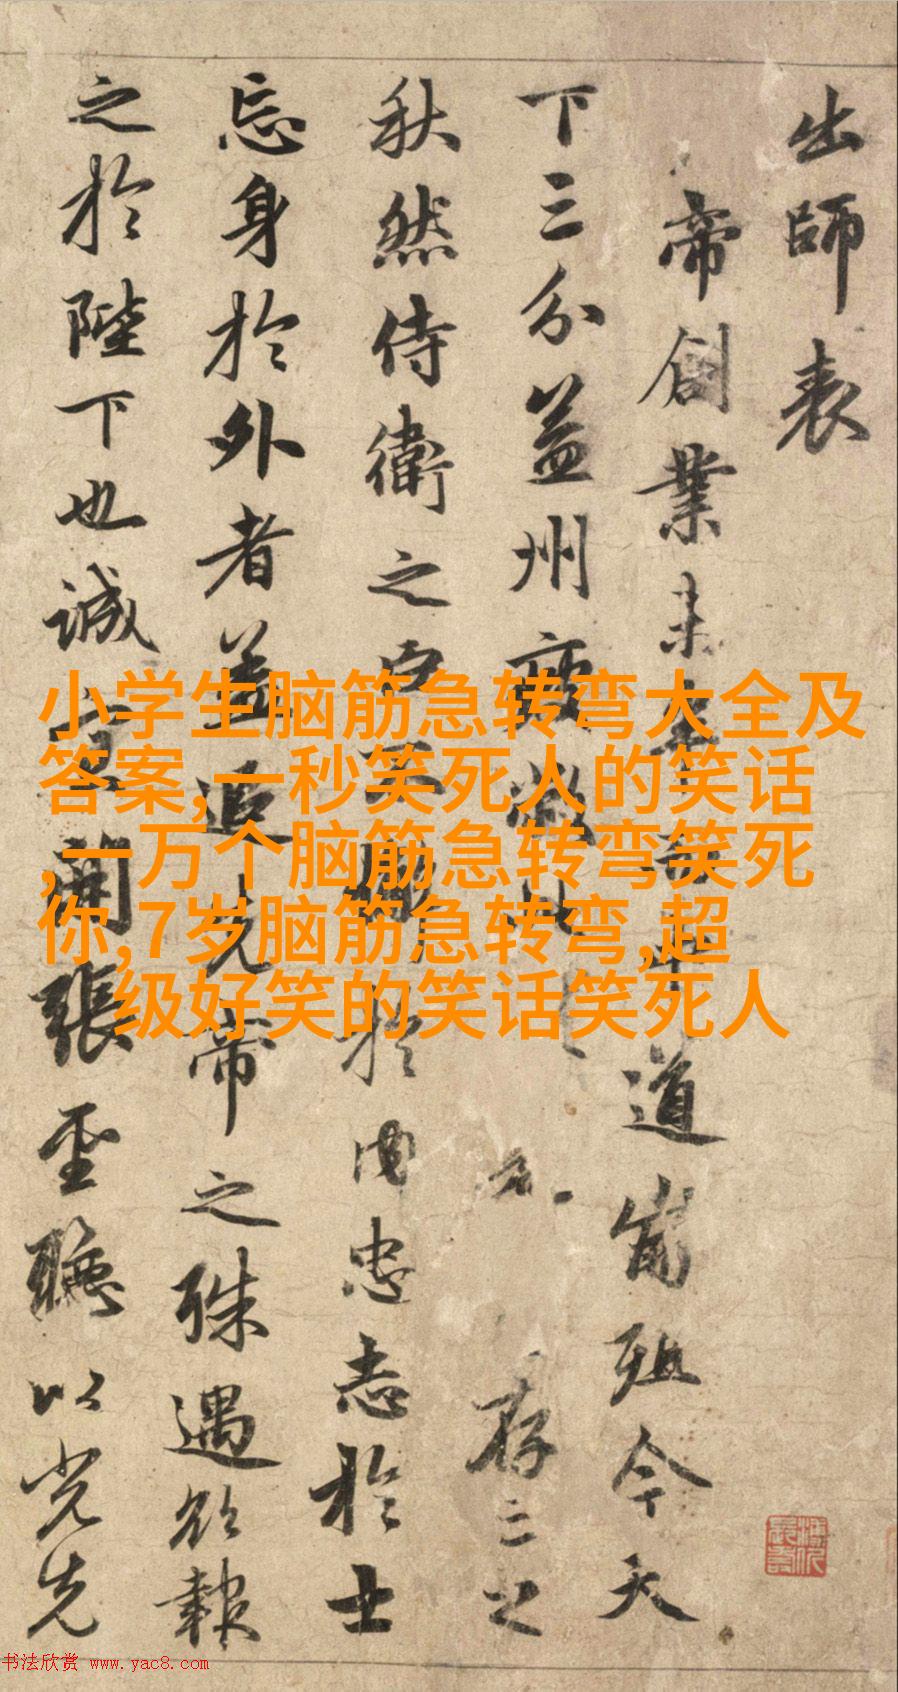 出師表
帝創業未道崩殂今天
下三分益州疲敝此存之
秋然侍衛之臣不懈於内忠志於士
忘身於外者蓋追先帝之殊遇欲報
之於陛下也誠宜開張聖聽以光先
小学生脑筋急转弯大全及
答案,一秒笑死人的笑话
,一万个脑筋急转弯笑死
你,7岁脑筋急转弯,超
级好笑的笑话笑死人
书法欣赏 www.yac8.com